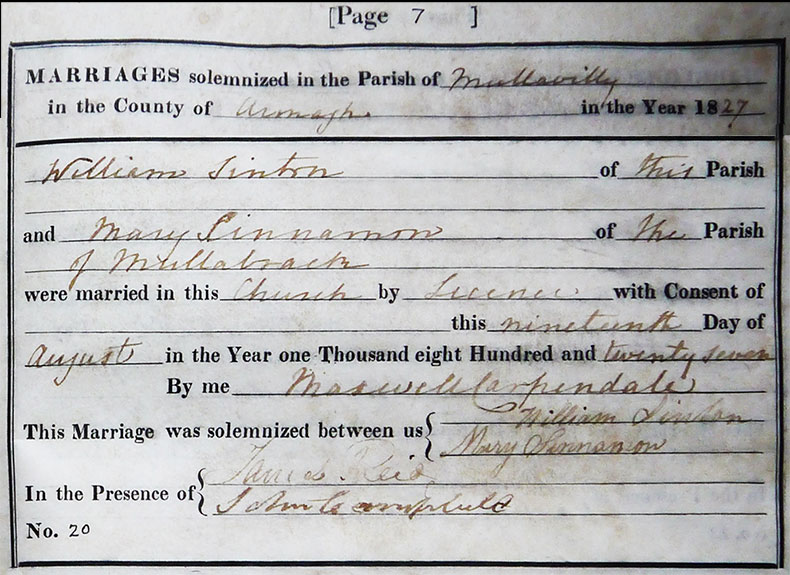 [Page 7 ]
MARRIAGES solemnized in the Parish of Mullavilly
in the County of Armagh in the Year 1827
William Sinton of this Parish
and Mary Sinnamon of the Parish
of Mullabrack
were married in this Church by Licence with Consent of
this nineteenth Day of
August in the Year one Thousand eight Hundred and twenty seven
By me Maxwell Carpendale
William Sinton
This Marriage was solemnized between us
Mary Sinnamon
James Reid
In the Presence of
John Campbell
No. 20